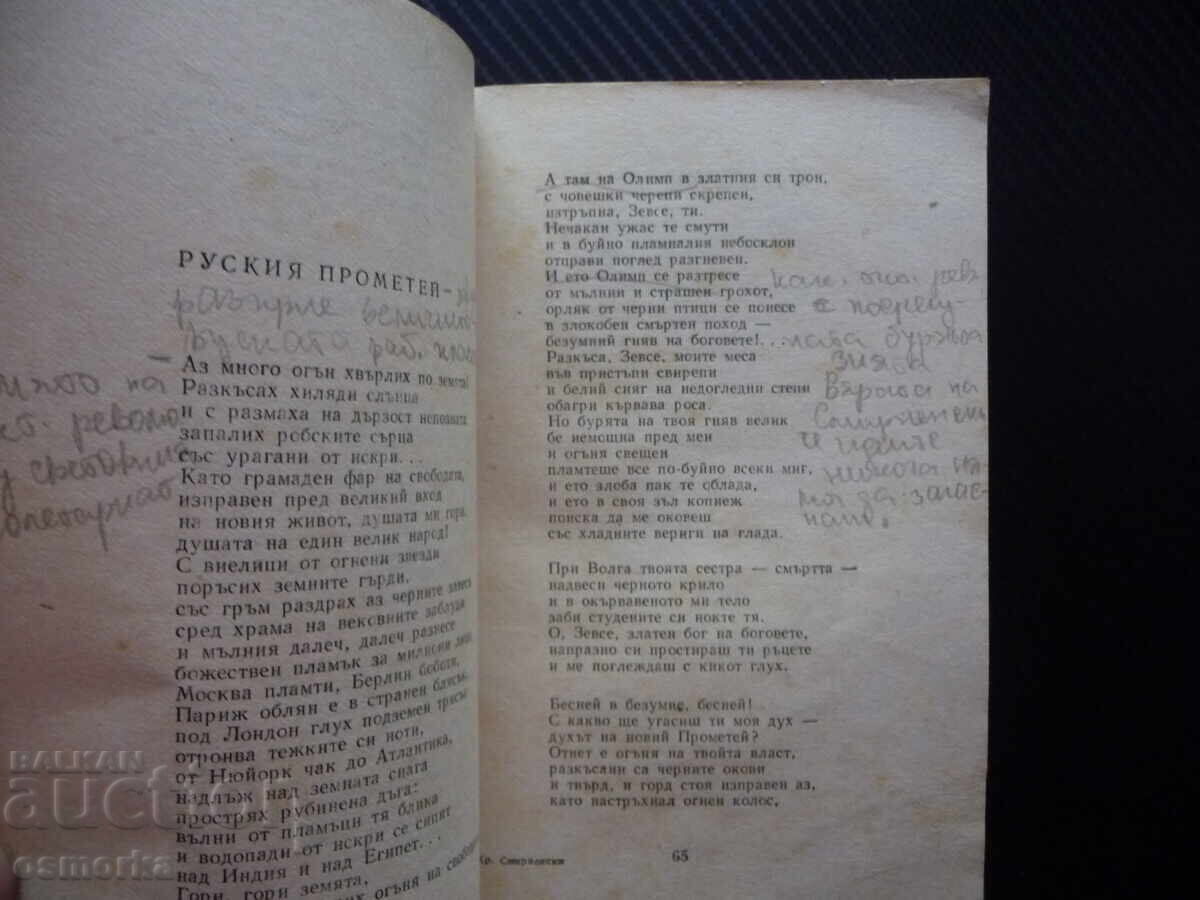 РУСКИЯ ПРОМЕТЕЙ
Аз много огън хвърлих по земята!
Разкъсах хиляди слънца
и с размаха на дързост непозната
запалих робските сърца
със урагани от искри...
Като грамаден фар на свободата,
изправен пред великий вход
на новия живот, душата ми гори,
душата на един велик народ!
С виелици от огнени звезди
поръсих земните гърди,
със гръм раздрах аз черните завеси
сред храма на вековните заблуди
и мълния далеч, далеч разнесе
божествен пламък за милиони
Москва пламти, Берлин боботи,
Париж облян е в странен блясък,
под Лондон глух подземен трясък
отронва тежките си ноти,
от Нюйорк чак до Атлантика,
надлъж над земната снага
прострях рубинена дъга:
вълни от пламъци тя блика
и водопади от искри се сипят
над Индия и над Египет...
Гори, гори земята,
огъня на
разкрие
на
А там на Олимп в златния си трон,
с човешки черепи скрепен,
изтръпна, Зевсе, ти.
Нечакан ужас те смути
и в буйно пламналия небосклон
отправи поглед разгневен.
И ето Олимп се разтресе
от мълнии и страшен грохот,
орляк от черни птици се понесе
в злокобен смъртен поход —
безумний гняв на боговете!...
Разкъса, Зевсе, моите меса
във пристъпи свирепи
и белий сняг на недогледни степи
обагри кървава роса.
Но бурята на твоя гняв велик
бе немощна пред мен
и огъня свещен
пламтеше все по-буйно всеки миг,
и ето злоба пак те облада,
и ето в своя зъл копнеж
поиска да ме оковеш
със хладните вериги на глада.
При Волга твоята сестра — смъртта —
надвеси черното крило
и в окървавеното ми тело
заби студените си нокте тя.
О, Зевсе, златен бог на боговете,
напразно си простираш ти ръцете
и ме поглеждаш с кикот глух.
Бесней в безумие, бесней!
С какво ще угасиш ти моя дух —
духът на новий Прометей?
Отнет е огъня на твойта власт,
разкъсани са черните окови
и твърд, и горд стоя изправен аз,
като настръхнал огнен колос,
вярата на
Смирненски
че идеите
никога
Хр. Смирненски
65
BALKAN
auction
osmorka